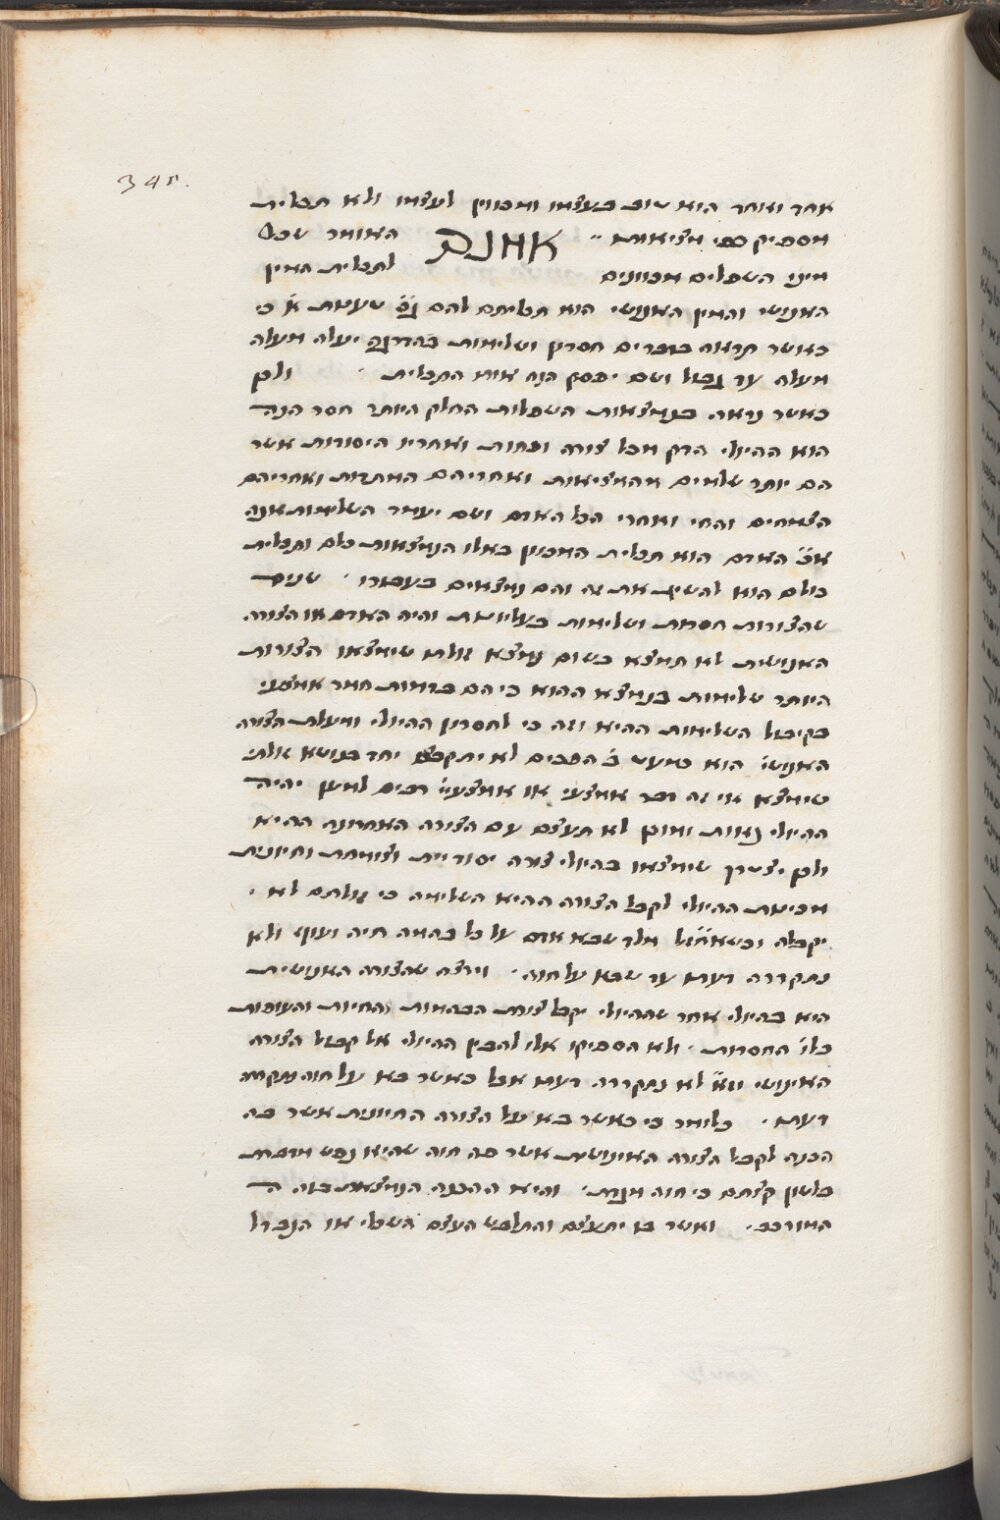 34r.
אחד ואחד הוא טוב בעצמו ומכוון לעצמו ולא תכלית
מספיק כפי מציאות אמנם האומר שכל
מיני השפלים מכוונים לתכלית המין
האנושי והמין האנושי הוא תכליתם להם כי
כאשר תראה בדברים חסרון ושלימות בהדרגה יעלה מעלה
מעלה עד גבול ושם יפסק הנה אותו התכלית ולכן
כאשר נראה בנמצאות השפלות החלק היותר חסר הנה
הוא ההיולי הרק מכל צורה ופחות ואחריו היסודות אשר
הם יותר שלמים מהמציאות ואחריהם המתכות ואחריהם
הצמחים והחי ואחרי הכל האדם ושם יעמד השלימות
האדם הוא תכלית המכוון באלו הנמצאות כלם ותכלית
כולם הוא להשיג את זה והם נמצאים בעבורו שנית
שהצורות חסרות ושלימות והיה האדם או הצורה
האנושית לא תמצא בשום נמצא זולת שימצאו הצורות
היותר שלימות בנמצא ההוא כי הם בדמות חמר אמצעי
בקיבול השלימות ההיא וזה כי לחסרון ההיולי ומעלת הצורה
האנושי הוא כמעט הפכים לא יתקבצו יחד בנושא זולתי
שימצא אי זה דבר אמצעי או אמצעיי רבים למען יהיה
ההיולי נאות ומוכן לא תעצם עם הצורה האחרונה ההיא
ולכן יצטרך שימצאו בהיולי צורה יסודיית וצומחת וחיונית
מכינות ההיולי לקבל הצורה ההיא השלימה כי זולתם לא
יקבלה מלמד שבא אדם על כל בהמה חיה ועוף ולא
נתקררה דעתו עד שבא על חוה וירצה שהצורה האנושית
היא בהיולי אחר שההיולי יקבל צורת הבהמות והחיות והעופות
כלו החסרות ולא הספיקו אלו להכין ההיולי אל קבול הצורה
האינושי לא נתקררה דעתו אבל כאשר בא על חוה נתקררה
דעתו כלומר כי כאשר בא על הצורה החיונית אשר בה
הכנה לקבל הצורה האינושית אשר בה חוה שהיא נפש מדברת
כלשון קצתם כי חוה והיא ההכנה הנמצאת בזה ה
המורכב ואשר בו יתעצם והתלבש העצם השכלי או הנבדל